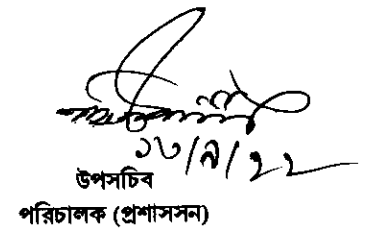 ১৩/৯/২২
উপসচিব
পরিচালক (প্রশাসসন)